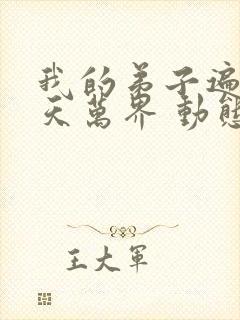 我的弟子遍
天萬界 動態
王大軍